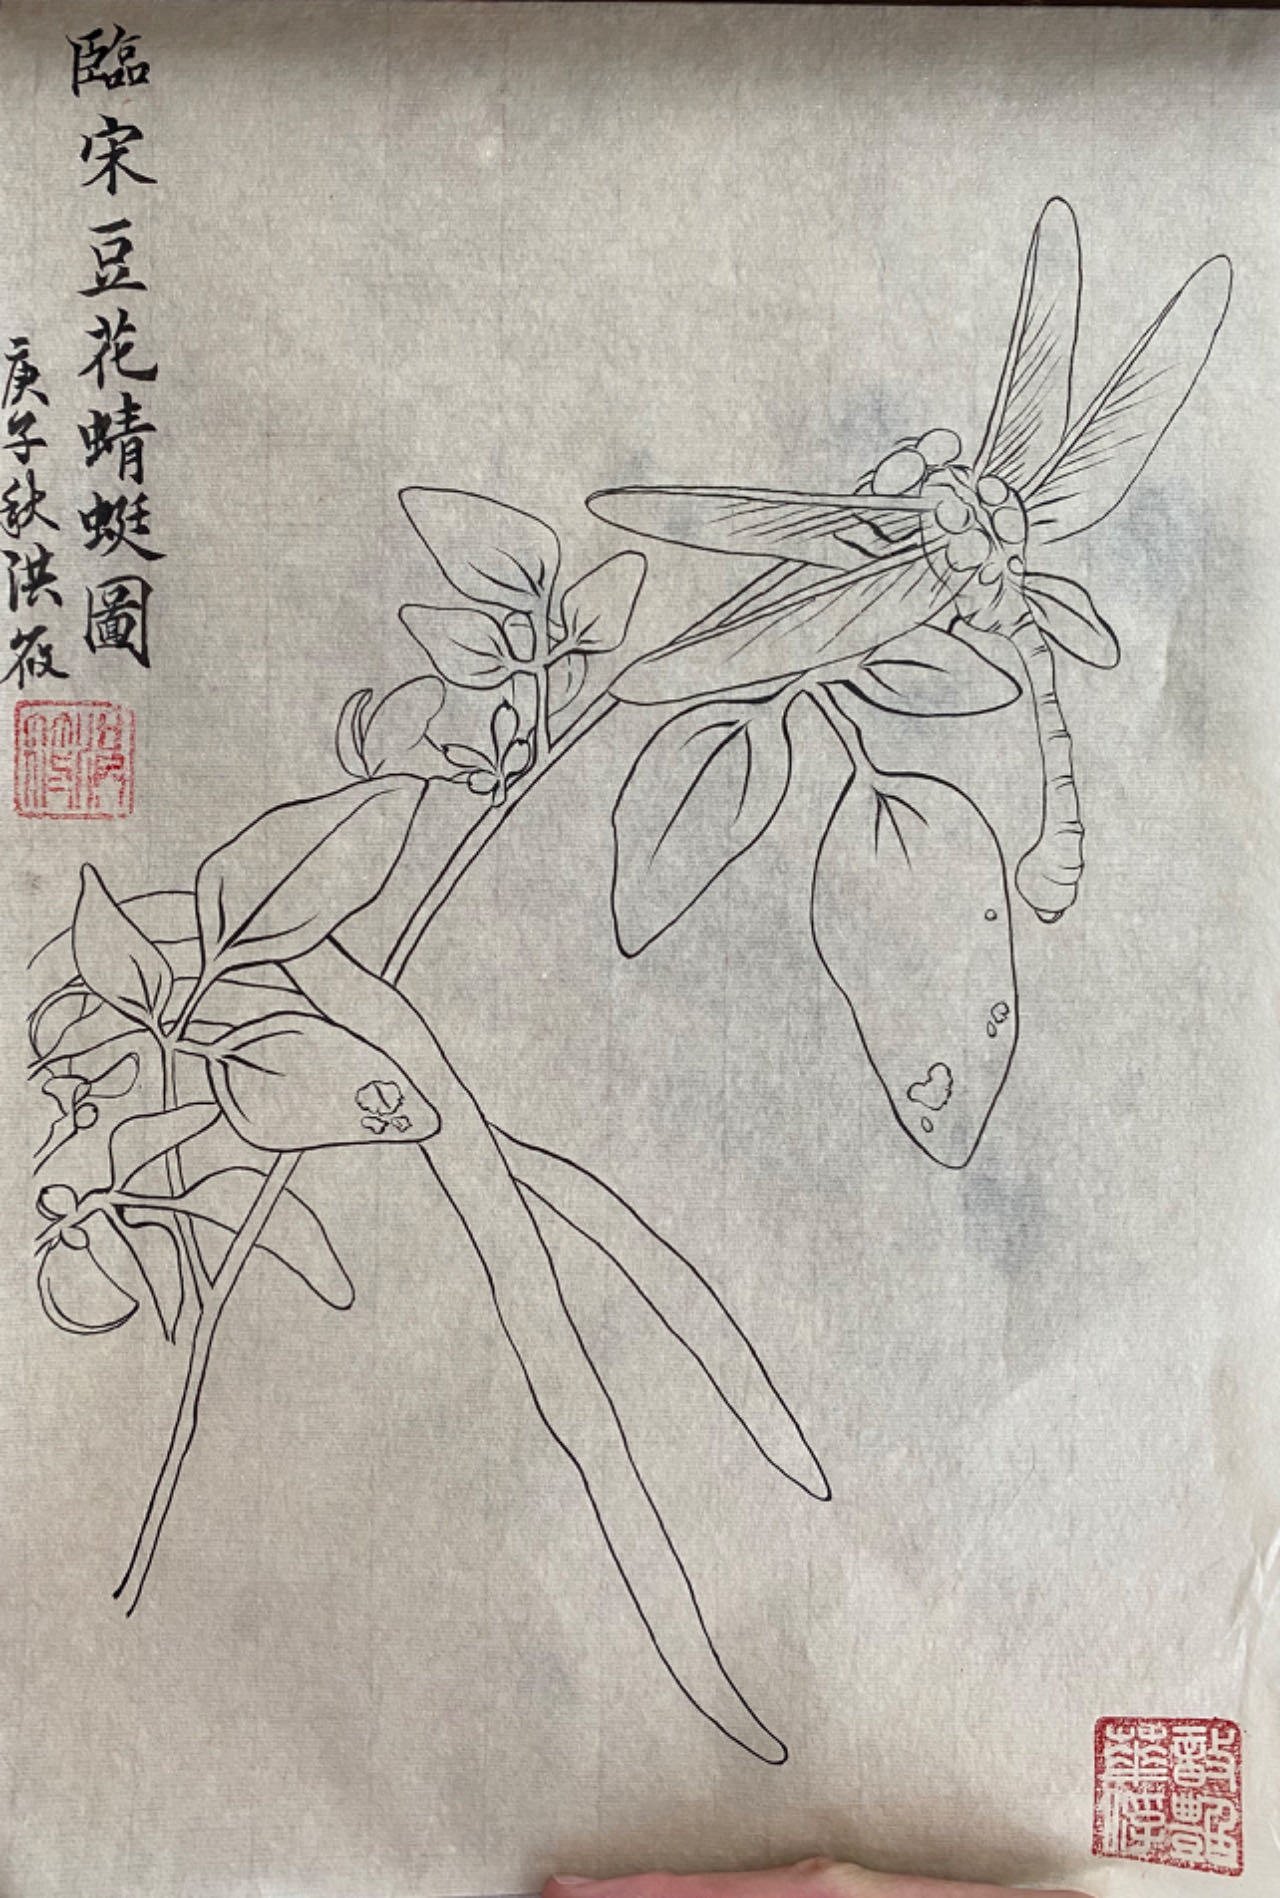 臨宋豆花蜻蜓圖
庚子秋洪筱